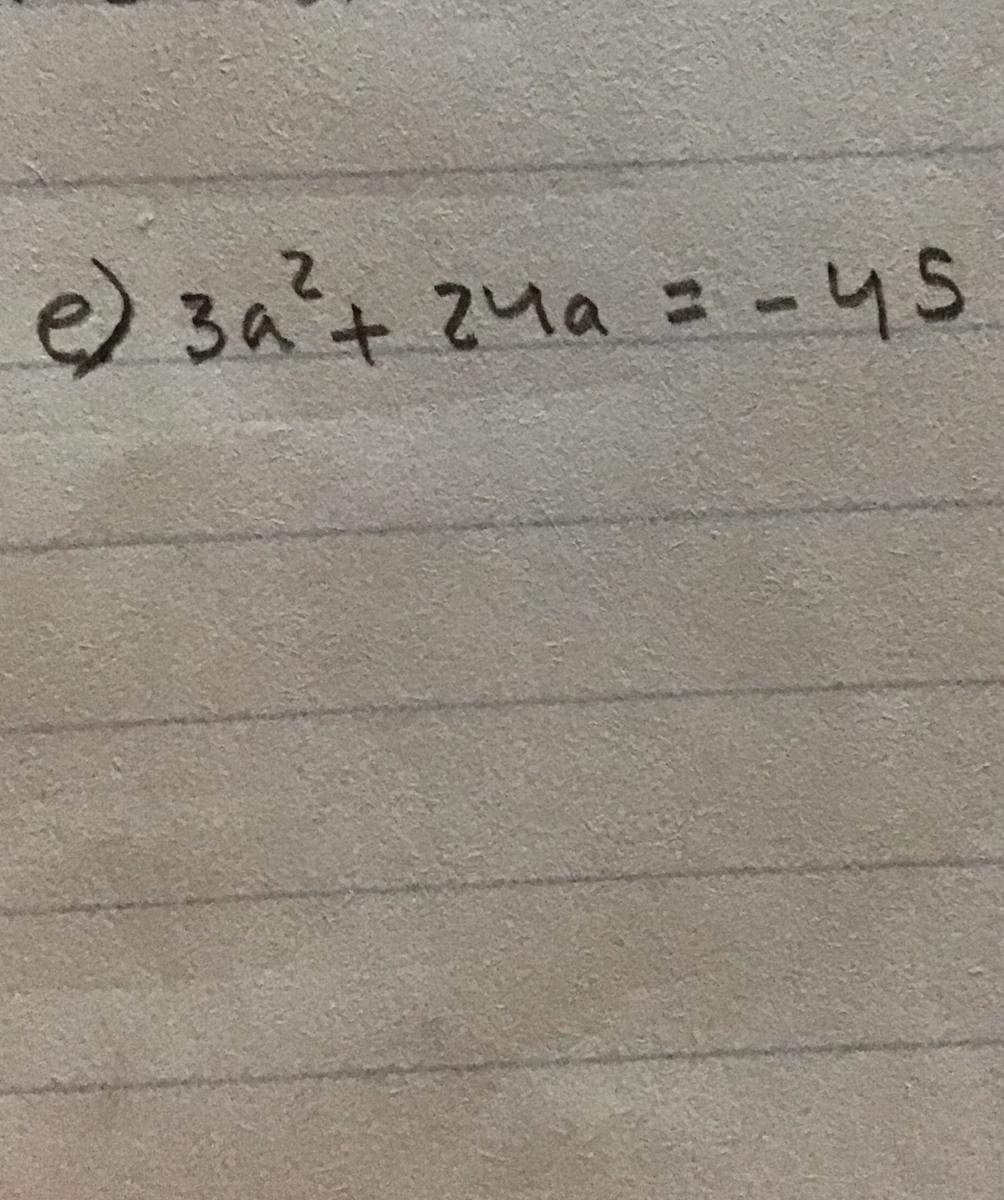 e) 3a² + 24a = -45